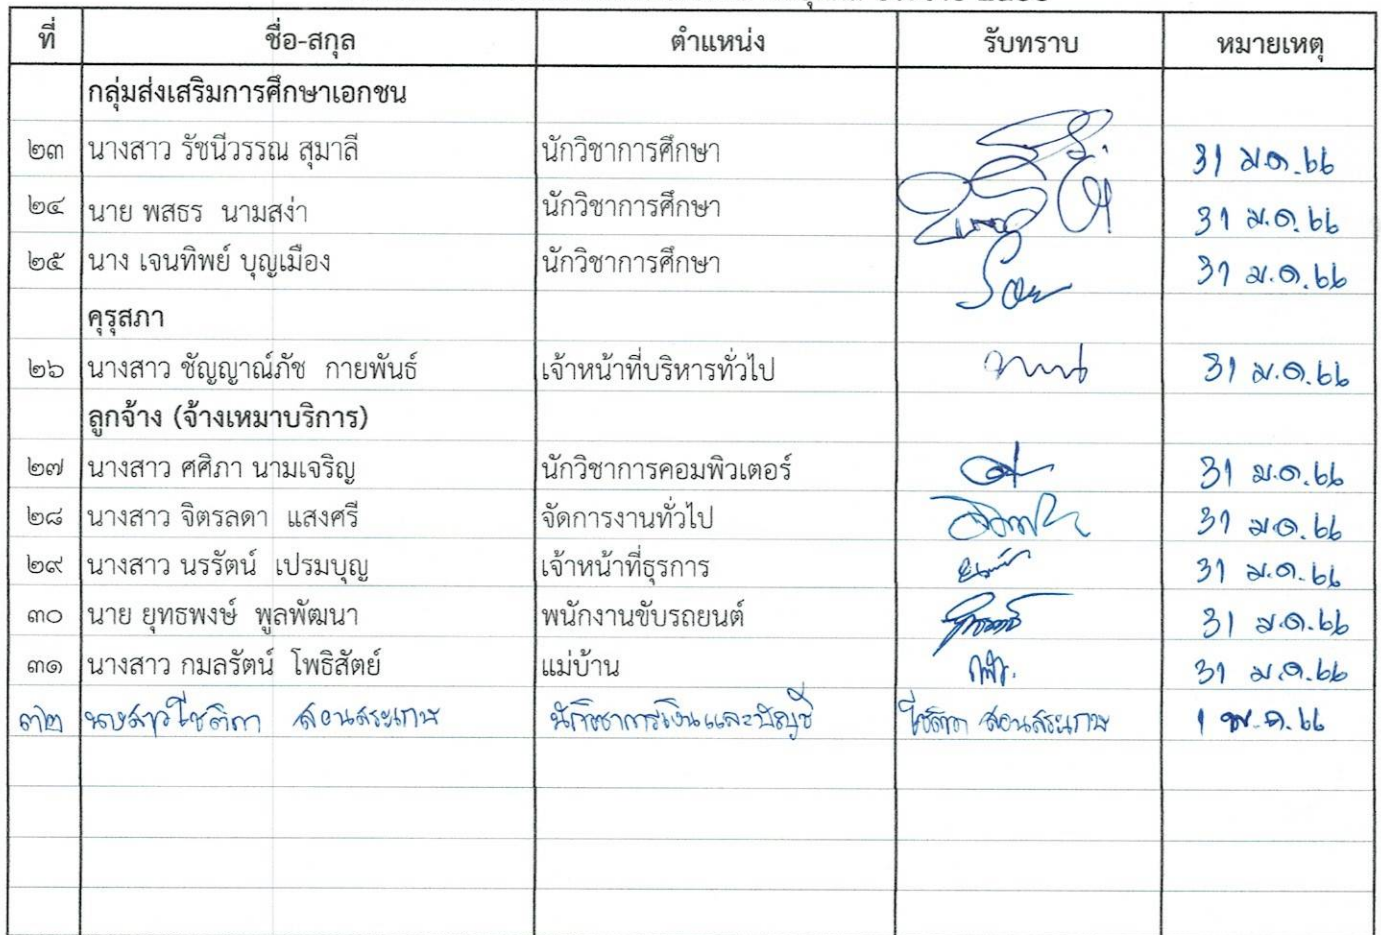 ที่ ชื่อ-สกุล ตำแหน่ง รับทราบ หมายเหตุ
กลุ่มส่งเสริมการศึกษาเอกชน
๒๓ นางสาว รัชนีวรรณ สุมาลี นักวิชาการศึกษา 31 ม.ค.66
๒๔ นาย พสธร นามสง่า นักวิชาการศึกษา 31 ม.ค.66
๒๕ นาง เจนทิพย์ บุญเมือง นักวิชาการศึกษา 31 ม.ค.66
คุรุสภา
๒๖ นางสาว ชัญญาณ์ภัช กายพันธ์ เจ้าหน้าที่บริหารทั่วไป 31 ม.ค.66
ลูกจ้าง (จ้างเหมาบริการ)
๒๗ นางสาว ศศิภา นามเจริญ นักวิชาการคอมพิวเตอร์ 31 ม.ค.66
๒๘ นางสาว จิตรลดา แสงศรี จัดการงานทั่วไป 31 ม.ค.66
๒๙ นางสาว นรรัตน์ เปรมบุญ เจ้าหน้าที่ธุรการ 31 ม.ค.66
๓๐ นาย ยุทธพงษ์ พูลพัฒนา พนักงานขับรถยนต์ 31 ม.ค.66
๓๑ นางสาว กมลรัตน์ โพธิสัตย์ แม่บ้าน 31 ม.ค.66
๓๒ นางสาวโชติกา สอนสระเกษ นักวิชาการเงินและบัญชี โชติกา สอนสระเกษ 1 พ.ค.66